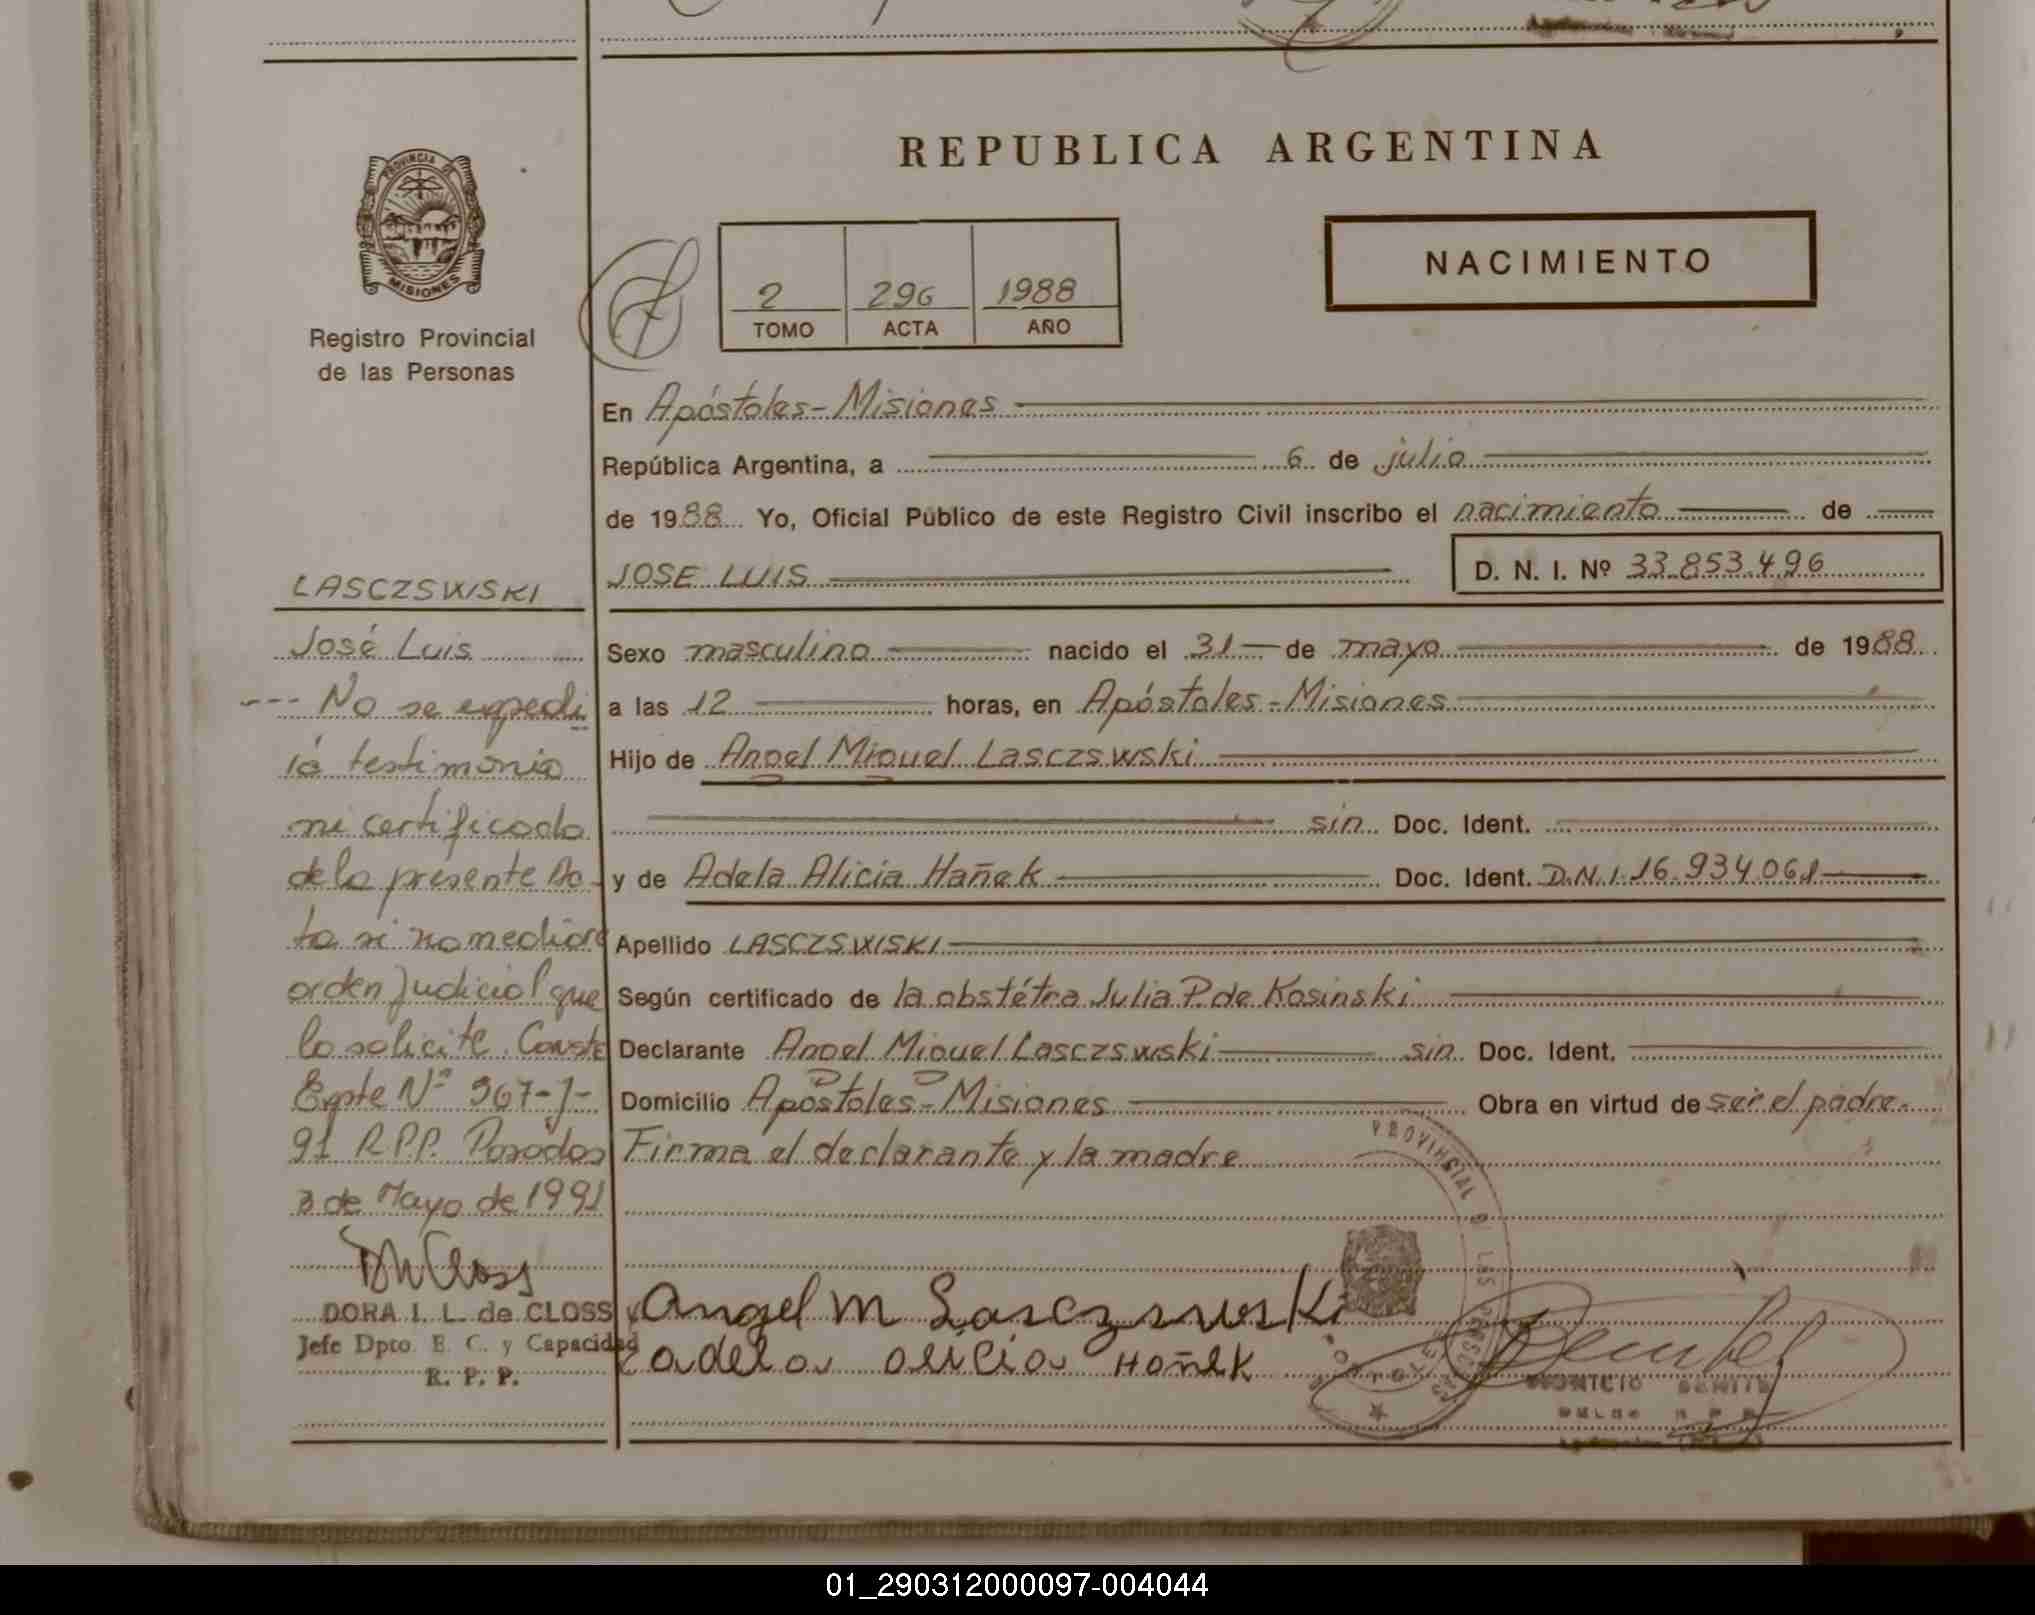 PROVINCIA DE
MISIONES
Registro Provincial
de las Personas
REPUBLICA ARGENTINA
NACIMIENTO
2 296 1988
TOMO ACTA AÑO
En Apóstoles-Misiones
República Argentina, a 6 de julio
de 1988 Yo, Oficial Público de este Registro Civil inscribo el nacimiento de
JOSE LUIS D. N. I. Nº 33.853.496
Sexo masculino nacido el 31 de mayo de 1988
a las 12 horas, en Apóstoles-Misiones
Hijo de Angel Miguel Lasczswski
sin Doc. Ident.
y de Adela Alicia Hañek Doc. Ident. D.N.I. 16.934.061
Apellido LASCZSWISKI
Según certificado de la obstétra Julia P. de Kosinski
Declarante Angel Miguel Lasczswski sin Doc. Ident.
Domicilio Apóstoles-Misiones Obra en virtud de ser el padre.
Firma el declarante y la madre
Angel M Lasczswski
adela alicia Hañek
LASCZSWISKI
José Luis
--- No se expedi
ió testimonio
ni certificado
de la presente Ac-
ta si no mediare
orden Judicial que
lo solicite. Conste
Expte Nº 967-J-
91 R.P.P. Posadas
3 de Mayo de 1991
DORA I. L. de CLOSS
Jefe Dpto. E. C. y Capacidad
R. P. P.
01_290312000097-004044